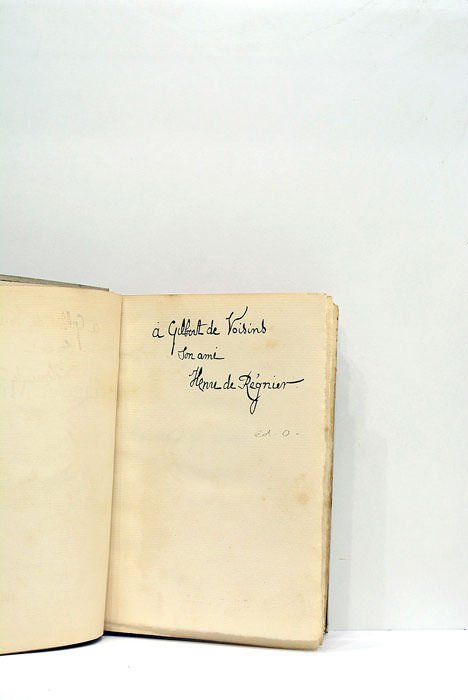 à Gilbert de Voisins
son ami
Henri de Régnier
éd. O.